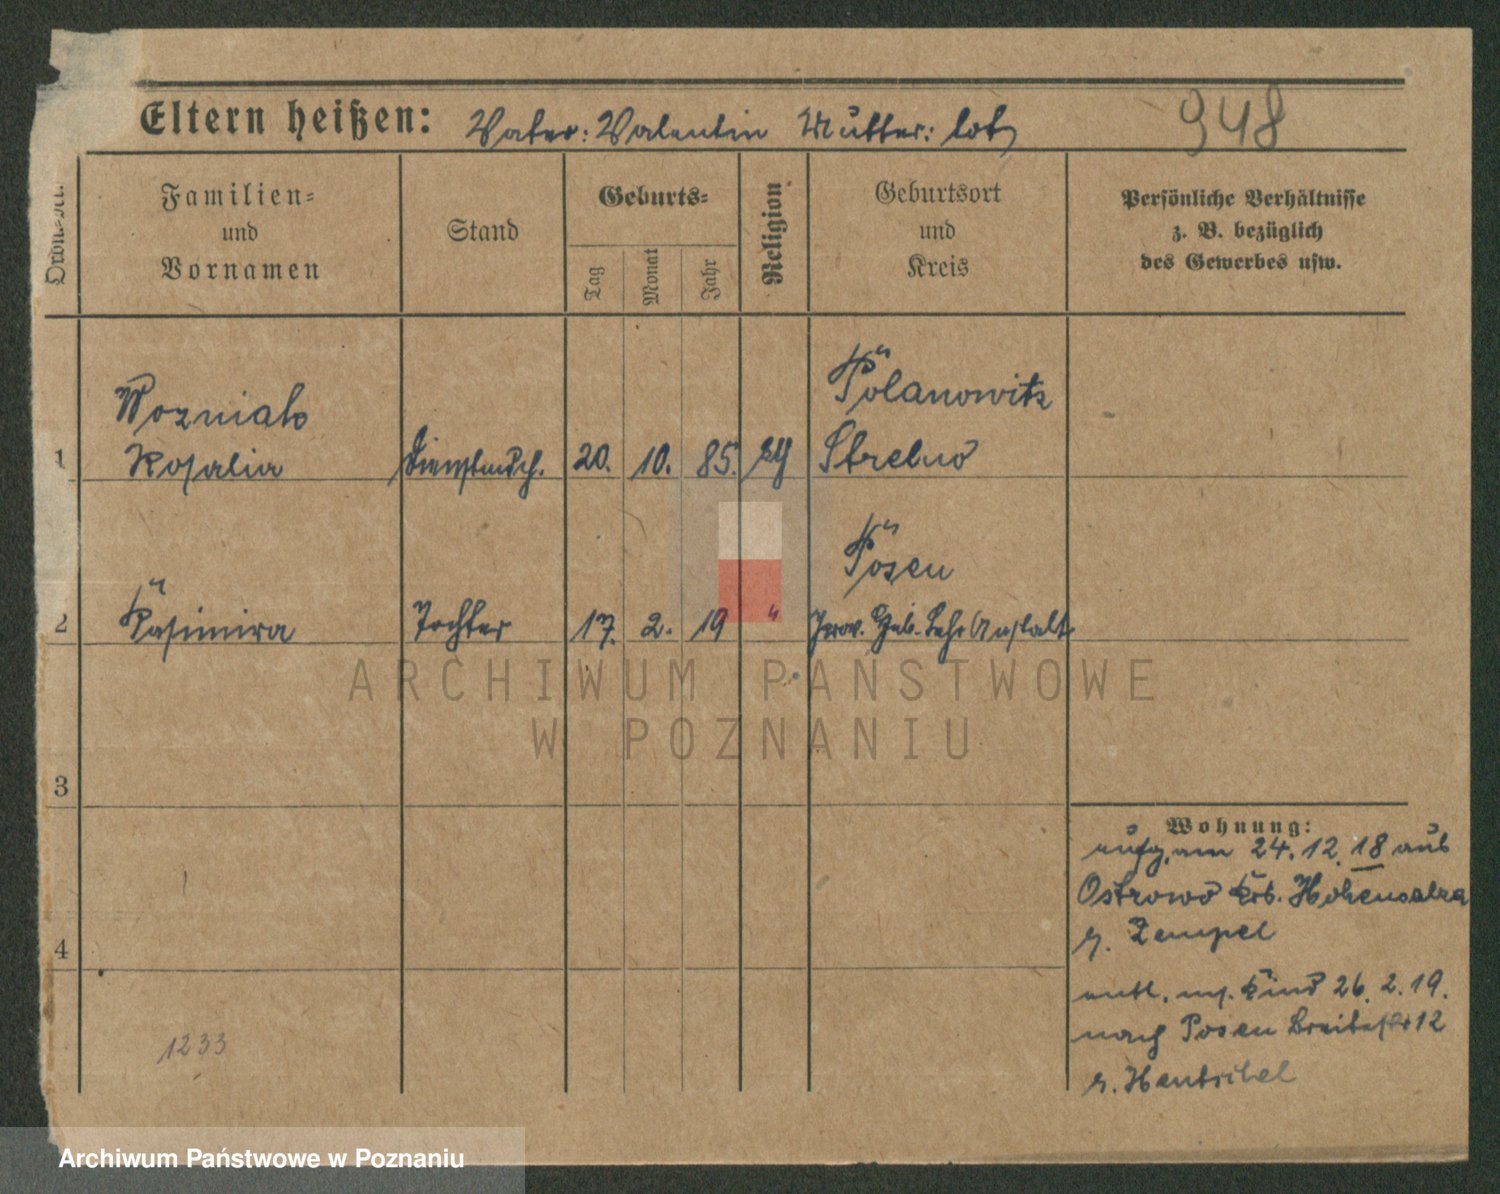 Eltern heißen: Vater: Valentin Mutter: tot
948
Ordn.-Nr.
Familien-
und
Vornamen
Stand
Geburts-
Tag
Monat
Jahr
Religion
Geburtsort
und
Kreis
Persönliche Verhältnisse
z. B. bezüglich
des Gewerbes usw.
Wozniak
Polanowitz
1 Rosalia Dienstmdch. 20. 10. 85. Strelno
Posen
2 Kasimira Tochter 17. 2. 19 " Prov. Heb. Lehr Anstalt
ARCHIWUM PAŃSTWOWE
W POZNANIU
3
Wohnung:
aufg. am 24. 12. 18 aus
Ostrowo Krs. Hohensalza
4
b. Zempel
entl. m. Kind 26. 2. 19.
nach Posen Breitestr 12
1233
b.
Archiwum Państwowe w Poznaniu